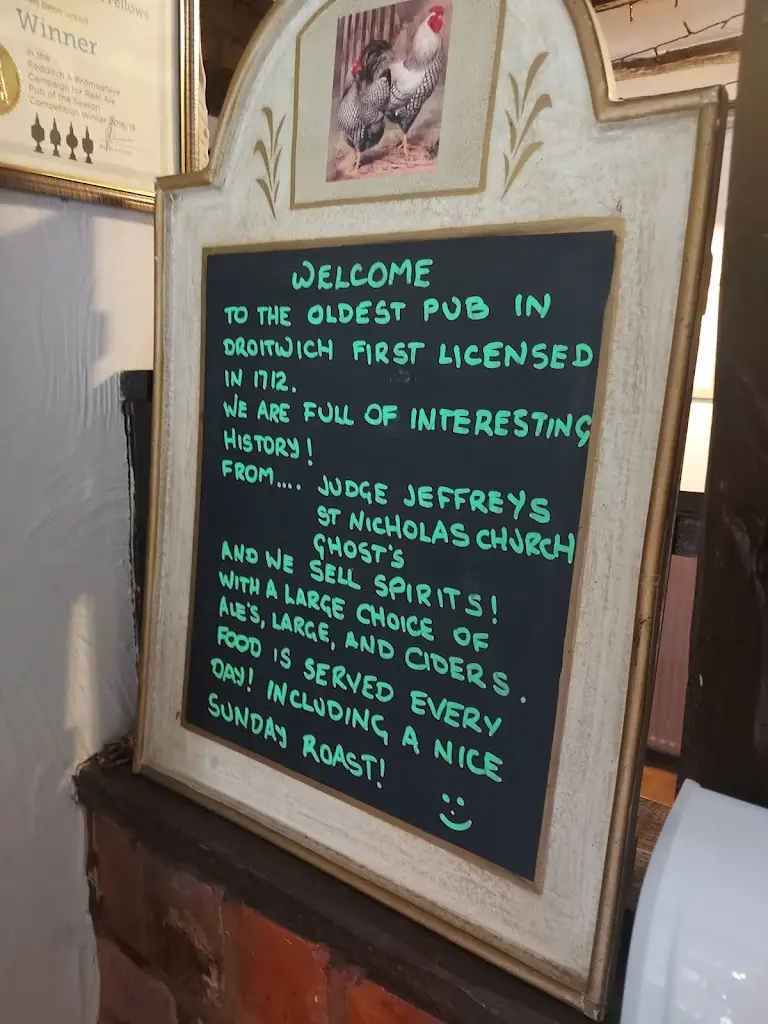 Fellows
been voted
Winner
in the
Redditch & Bromsgrove
Campaign for Real Ale
Pub of the Season
Competition Winter 2018/19
WELCOME
TO THE OLDEST PUB IN
DROITWICH FIRST LICENSED
IN 1712.
WE ARE FULL OF INTERESTING
HISTORY!
FROM.... JUDGE JEFFREYS
ST NICHOLAS CHURCH
GHOST'S
AND WE SELL SPIRITS!
WITH A LARGE CHOICE OF
ALE'S, LARGE, AND CIDERS.
FOOD IS SERVED EVERY
DAY! INCLUDING A NICE
SUNDAY ROAST!